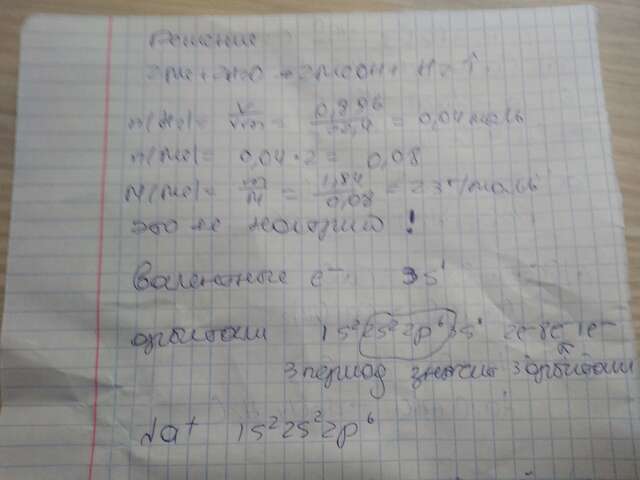 Решение
2Me+2H2O → 2MeOH+ H2↑
n(H2)= V/Vm = 0,896/22,4 = 0,04 моль
n(Me)= 0,04·2= 0,08
M(Me)= m/n = 1,84/0,08 = 23 г/моль
это не
Валентные e⁻ 3s¹
орбитали 1s²2s²2p⁶3s¹ 2e⁻8e⁻1e⁻
3 период значит 3 орбитали
Na⁺ 1s²2s²2p⁶